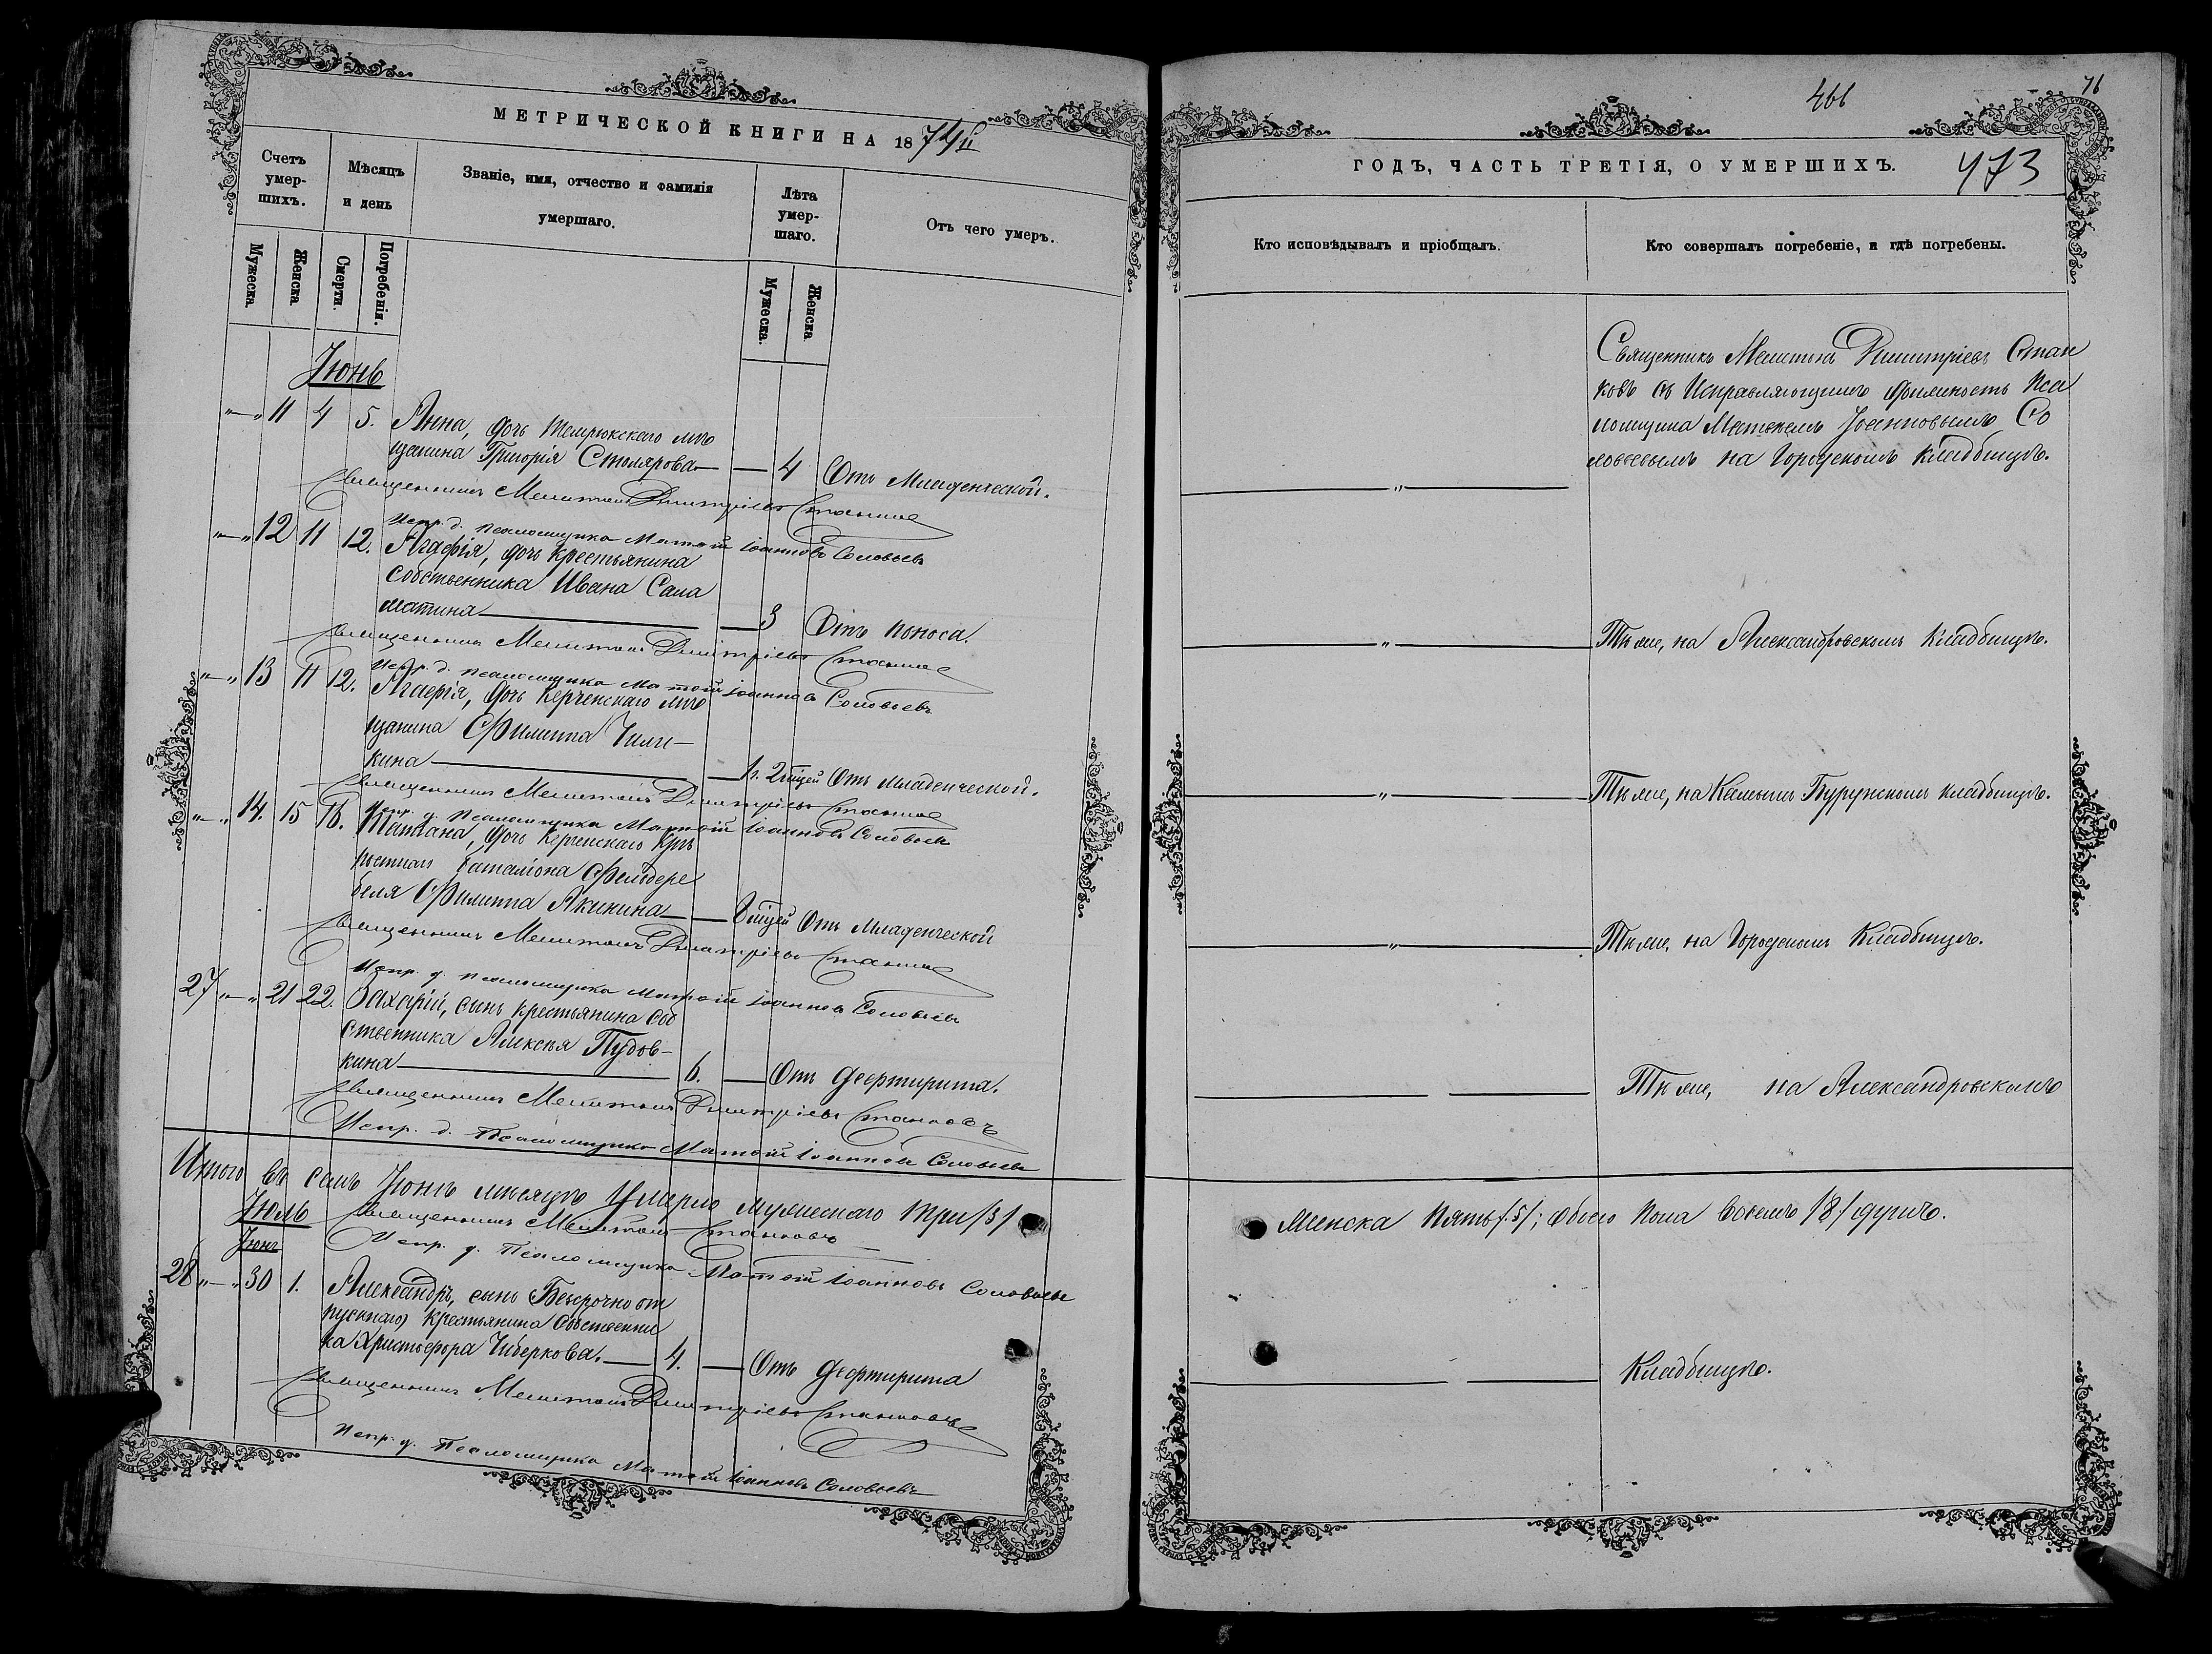 МЕТРИЧЕСКОЙ КНИГИ НА 1874й
Счетъ умер-шихъ.
Мѣсяцъ и день
Званіе, имя, отчество и фамилія умершаго.
Лѣта умер-шаго.
Отъ чего умеръ.
Мужеска.
Женска
Смерти.
Погребенія.
Мужеска.
Женска
Іюнь
11 4 5. Анна, дочь Темрюкскаго мѣ
щанина Григорія Столярова — — 4 Отъ Младенческой.
Священникъ Мелитонъ Димитріевъ Станковъ
Испр. д. псаломщика Матѳій Іоанновъ Соловьевъ
12 11 12. Агафія, дочь крестьянина
собственника Ивана Сала
матина — — 3 Отъ поноса.
Священникъ Мелитонъ Димитріевъ Станковъ
Испр. д. псаломщика Матѳій Іоанновъ Соловьевъ
13 11 12. Агафія, дочь Керченскаго мѣ
щанина Филиппа Чили-
кина — — 1г. 2 мцей Отъ младенческой.
Священникъ Мелитонъ Димитріевъ Станковъ
Испр. д. Псаломщика Матѳій Іоанновъ Соловьевъ
14. 15 16. Татіана, дочь Керченскаго Крѣ
постнаго баталіона Фельдфе
беля Филиппа Акинина — — 8 мцей Отъ Младенческой
Священникъ Мелитонъ Димитріевъ Станковъ
Испр. д. псаломщика Матѳій Іоанновъ Соловьевъ
27 21 22. Захарій, сынъ крестьянина соб
ственника Алексѣя Пудов-
кина — 6. — Отъ дефтирита.
Священникъ Мелитонъ Димитріевъ Станковъ
Испр. д. Псаломщика Матѳій Іоанновъ Соловьевъ
Итого въ семъ Іюнѣ мѣсяцѣ умерло мужескаго три /3/
Іюль Священникъ Мелитонъ Станковъ
Іюнь Испр. д. Псаломщика Матѳій Іоанновъ Соловьевъ
28 30 1. Александръ, сынъ Безсрочно от
пускнаго крестьянина собственни
ка Христофора Чиберкова. — 4. — Отъ дефтирита
Священникъ Мелитонъ Димитріевъ Станковъ
Испр. д. Псаломщика Матѳій Іоанновъ Соловьевъ
466
76
ГОДЪ, ЧАСТЬ ТРЕТІЯ, О УМЕРШИХЪ.
473
Кто исповѣдывалъ и пріобщалъ.
Кто совершалъ погребеніе, и гдѣ погребены.
Священникъ Мелитонъ Димитріевъ Стан
ковъ съ Исправляющимъ должность Пса
ломщика Матѳеемъ Іоанновымъ Со
ловьевымъ на Городскомъ кладбищѣ.
Тѣ же, на Александровскомъ Кладбищѣ.
Тѣ же, на Камышъ Бурунскомъ кладбищѣ.
Тѣ же, на Городскомъ Кладбищѣ.
Тѣ же, на Александровскомъ
женска пять /.5/; обоего пола восемь /8./ душъ.
Кладбищѣ.